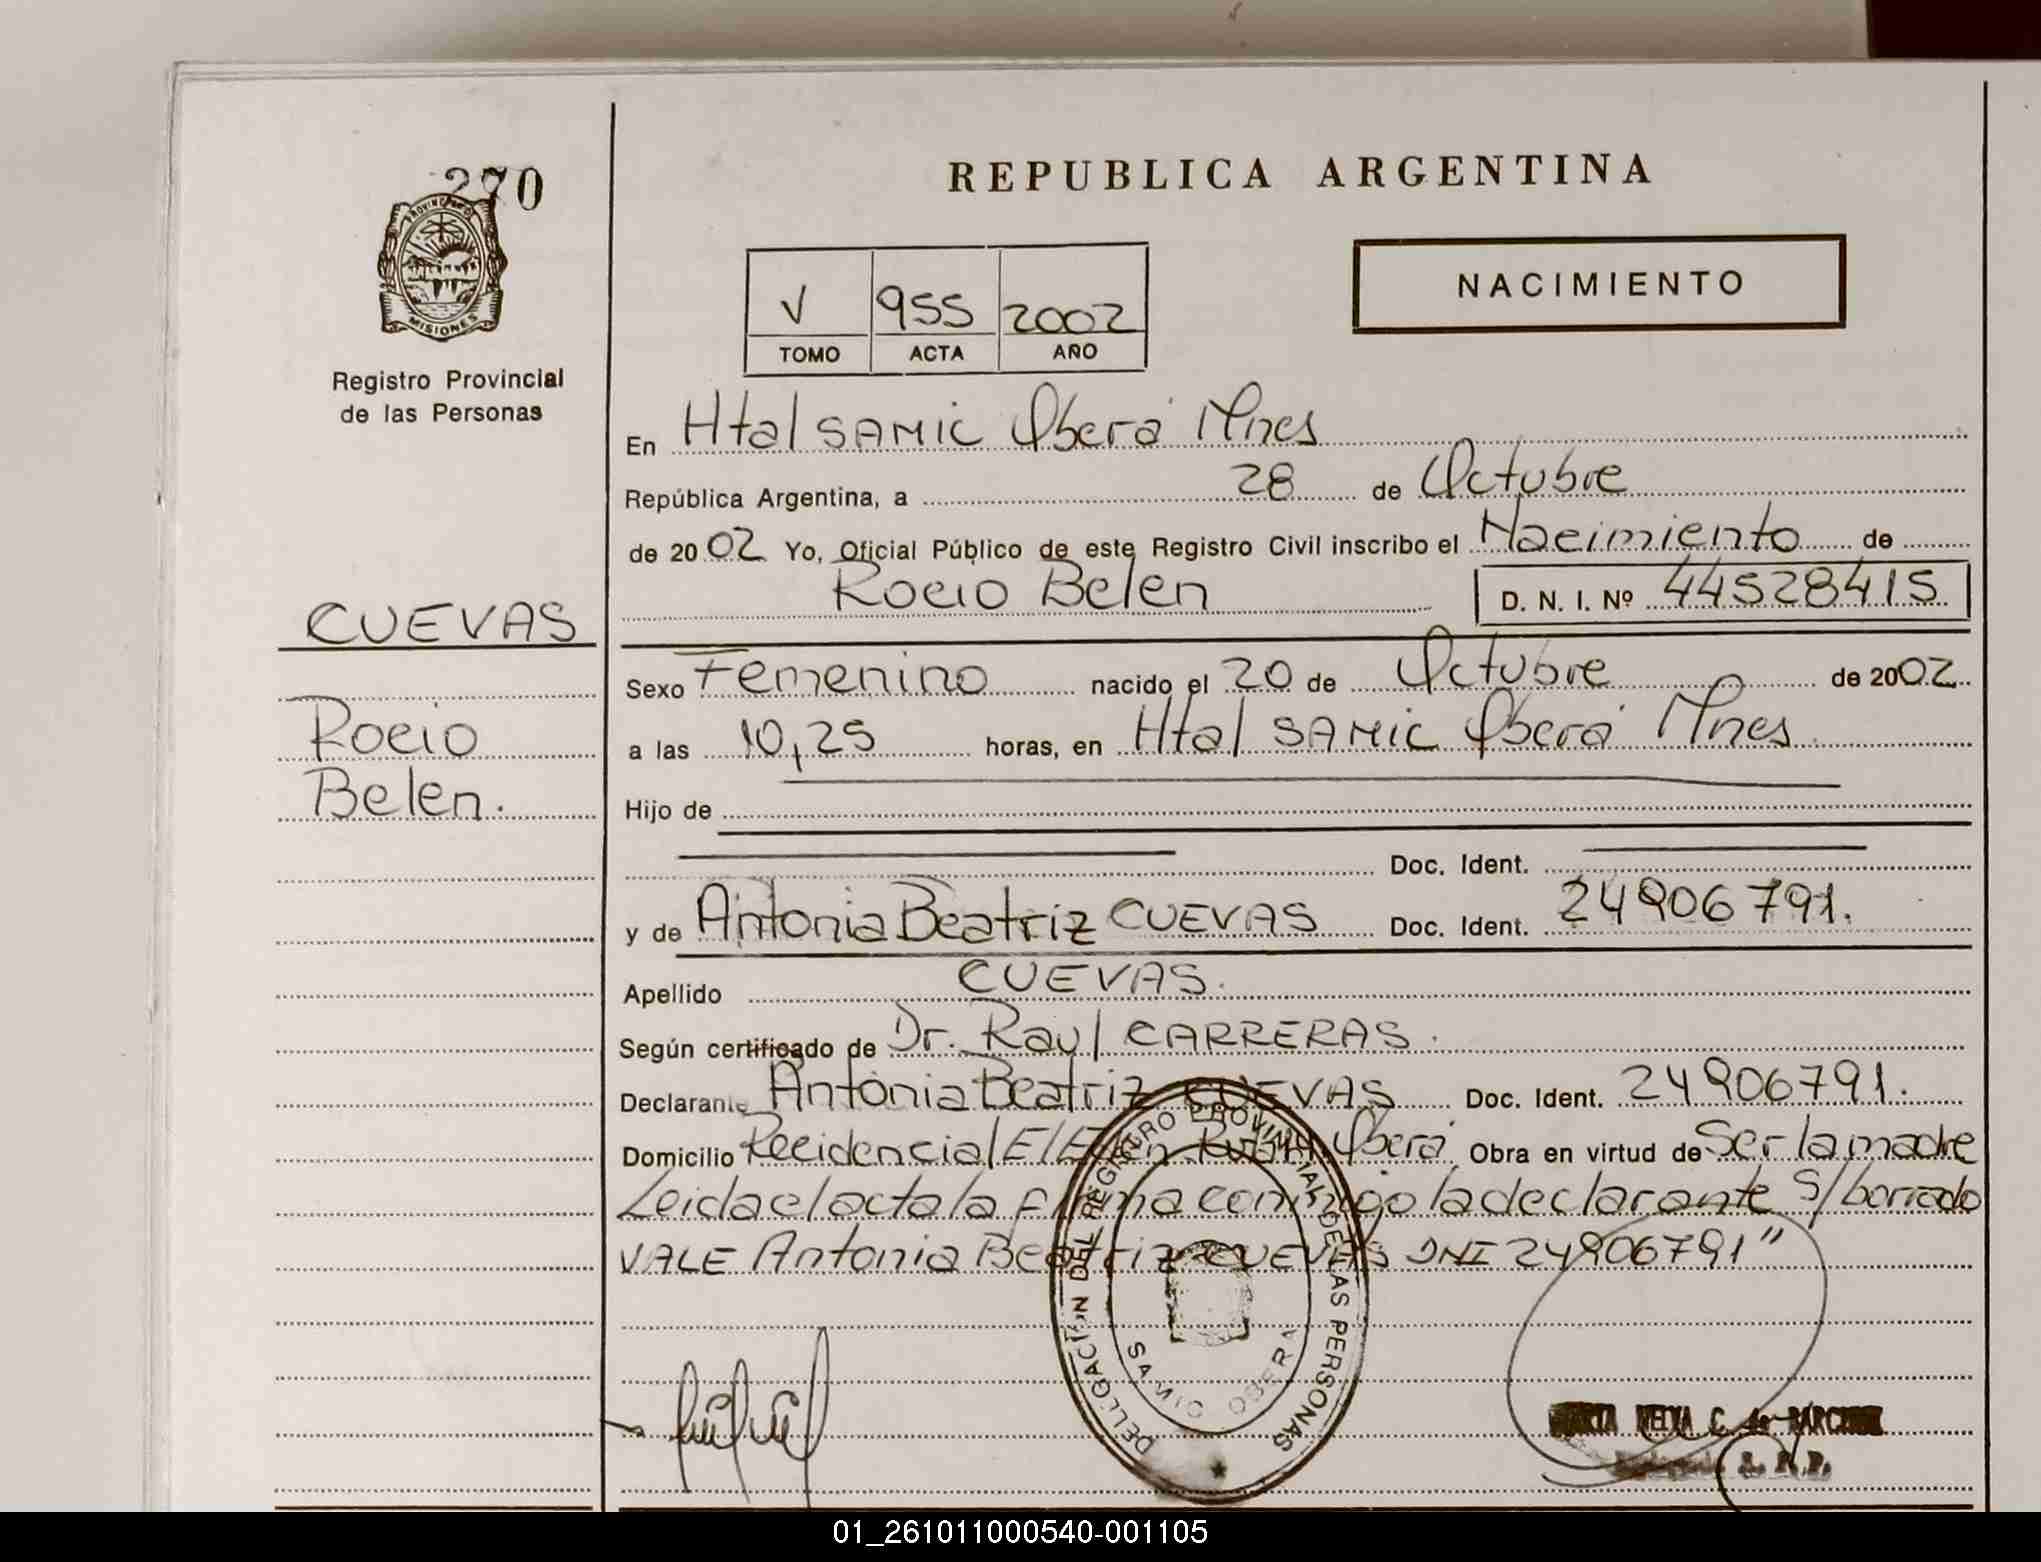 270
PROVINCIA DE
MISIONES
Registro Provincial
de las Personas
REPUBLICA ARGENTINA
V 955 2002
TOMO ACTA AÑO
NACIMIENTO
En Htal SAMIC Oberá Mnes
República Argentina, a 28 de Octubre
de 2002 Yo, Oficial Público de este Registro Civil inscribo el Nacimiento de
Rocio Belen D. N. I. Nº 44528415
CUEVAS
Rocio
Belen.
Sexo Femenino nacido el 20 de Octubre de 2002
a las 10,25 horas, en Htal SAMIC Oberá Mnes
Hijo de
Doc. Ident.
y de Antonia Beatriz CUEVAS Doc. Ident. 24906791.
Apellido CUEVAS.
Según certificado de Dr. Raul CARRERAS.
Declarante Antonia Beatriz CUEVAS Doc. Ident. 24906791.
Domicilio Recidencial El Oberá Obra en virtud de Ser la madre
Leida el acta la firma conmigo la declarante S/borrado
VALE Antonia Beatriz CUEVAS DNI 24906791"
DELEGACION DEL REGISTRO PROVINCIAL DE LAS PERSONAS
SAMIC OBERA
C. de
01_261011000540-001105